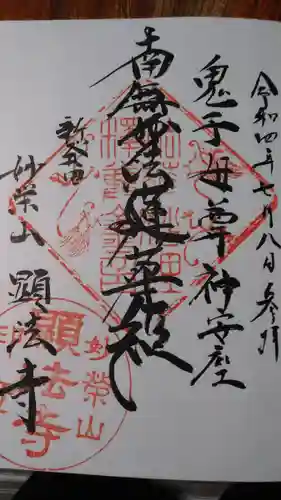 令和四年七月八日参拝
鬼子母尊神安座
南無妙法蓮華経
新発田
妙栄山 顕法寺
妙榮山
顕法寺